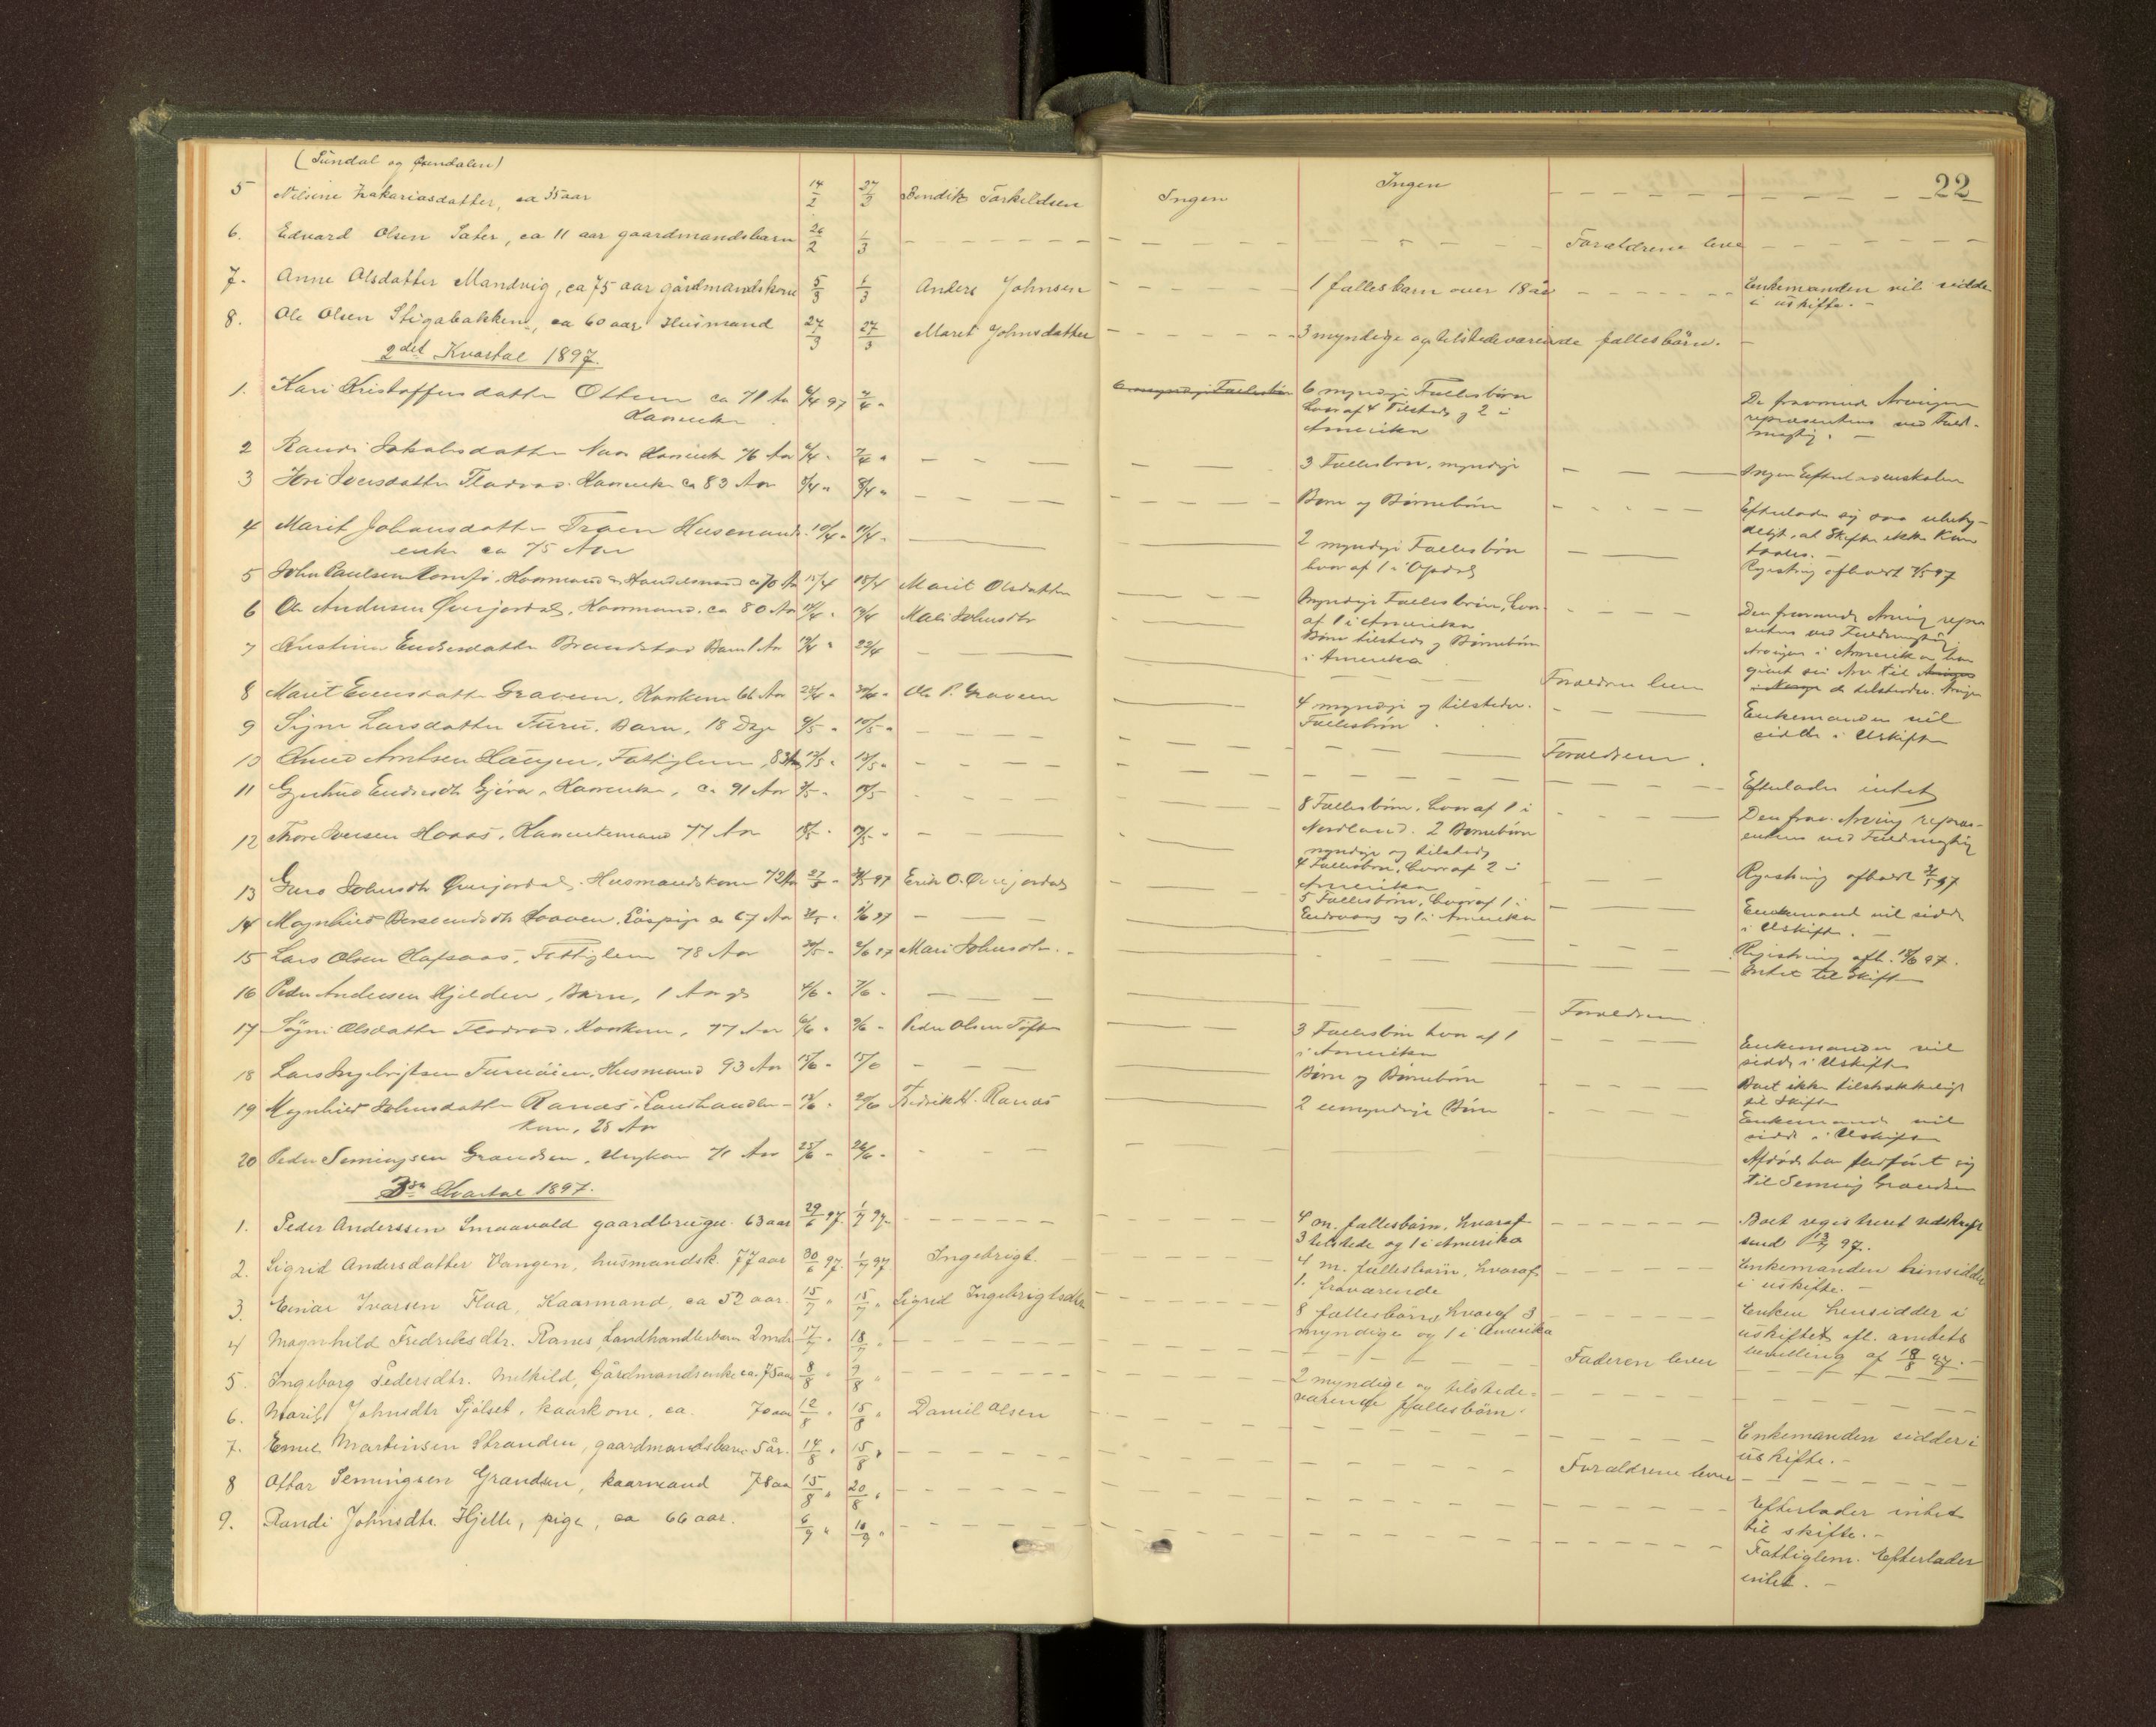 (Sundal og Øxendalen)
22
5 Nilsine Zakariasdatter, ca 35 aar 14/2 27/3 Bendik Torkildsen Ingen Ingen
6. Edvard Olsen Sæter, ca 11 aar gaardmandsbarn 26/2 1/3 Forældrene lever
7. Anne Olsdatter Mandvig, ca 75 aar gårdmandskone 5/3 6/3 Anders Johnsen 1 fællesbarn over 18 år Enkemanden vil sidde
i uskifte. -
8. Ole Olsen Stigabakken, ca 60 aar Husmand 27/3 27/3 Maret Johnsdatter 3 myndige og tilstedeværende fællesbörn.
2det Kvartal 1897.
1. Kari Kristoffersdatter Ottem ca 71 Aar 6/4 97 7/4 " 6 myndige Fællesbörn 6 myndige Fællesbörn
Kaarenke hvoraf 4 Tilstede og 2 i
Amerika
De fraværende Arvinger
repræsenteres ved Fuld-
mægtig. -
2 Randi Jakobsdatter Kaarenke 76 Aar 6/4 " 7/4 " 3 Fællesbörn, myndige Ingen Efterladenskaber
3 Iversdatter Fladvad. Kaarenke ca 83 Aar 8/4 " Børn og Børnebörn Efterlader sig saa ubety-
deligt, at Skifte ikke kan
4 Marit Johansdatter Troen Husmands- 10/4 " 11/4 " 2 myndige Fællesbörn
enke ca 75 Aar hvoraf 1 i Opdal
5 John Paulsen Kaarmand og Handelsmand ca 70 Aar 15/4 18/4 Marit Olsdatter Registrering afholdt 97
6 Ole Andersen Øverjordal, Kaarmand, ca 80 Aar Mali Johnsdtr Myndige Fællesbörn, hvor-
af 1 i Amerika
Den fraværende Arving repræ-
enteres ved Fuldmægtig
7 Kristine Endresdatter Brandstad Barn 1 Aar 22/4 Børn tilstede og Börnebörn
i Amerika
Arvingen i Amerika har
givet sin Arv til Arvinger
i Norge de tilstedev. Arvinger
Forældrene lever
8 Marit Evensdatter Gravem, Konkone 66 Aar Ole P. Gravem 4 myndige og tilstedev.
Fællesbörn
Enkemanden vil
sidde i Uskifte
9 Signe Larsdatter Furu, Barn, 18 Dage 9/5 " 10/5 " Forældrene.
10 Knud Arntsen Haugen, Fattiglem, 83 Aar Efterlader intet
11 Gjertrud Endresdtr Gjöra, Kaarenke, ca 91 Aar 8 Fællesbörn, hvoraf 1 i
Nordland. 2 Børnebörn
myndige og tilstede
Den frav. Arving repræs-
enteres ved Fuldmægtig
12 Thore Iversen Hoaas, Kaarenkemand 77 Aar 4 Fællesbörn, hvoraf 2 i
Amerika
Registering afholdt 97
13 Guro Johnsdtr Øverjordal, Husmandskone 72 Aar 27/5 97 Erik O. Øverjordal 5 Fællesbörn, hvoraf 1 i
og 1 i Amerika
Enkemand vil sidde
i Uskifte. -
14 Magnhild ca 67 Aar 97 Registrering afh. 97.
15 Lars Olsen Hafsaas, Fattiglem 78 Aar 97 Mari Johnsdtr. Intet til Skifte
16 Peder Andersen Hjelden, Barn, 1 Aar gl 4/6 " 7/6 " Forældrene
17 Olsdatter Fladvad, Konkone, 77 Aar 6/6 " 9/6 " Peder Olsen Toften 3 Fællesbörn hvoraf 1
i Amerika
Enkemanden vil
sidde i Uskifte
18 Lars Ingebrigtsen Furumoien, Husmand 93 Aar 15/6 " 15/6 Børn og Børnebörn Boet ikke tilstrækkeligt
til Skifte
19 Magnhild Johnsdatter Ranæs, Landhandler- 20/6 Fredrik H. Ranæs 2 umyndige Börn
kone, 28 Aar
Enkemand vil
sidde i Uskifte
20 Peder Semingsen Grandsen, Ungkar 71 Aar 25/6 " 26/6 " Afdøde har
til Seming Grandsen
3die Kvartal 1897.
1. Peder Anderssen Smaavold gaardbruger. 63 aar 29/6 97. 1/7 97. 4 m. fællesbörn, hvoraf
3 tilstede og 1 i Amerika
Boet registreret udskrift
send 13/7 97.
2. Sigrid Andersdatter Vangen, husmandsk. 77 aar 30/6 97. 1/7 97 Ingebrigt 4 m. fællesbörn, hvoraf
1. fraværende
Enkemanden hensidder
i uskifte. -
3. Einar Ivarsen Flaa, Kaarmand, ca 52 aar. 15/7 " 15/7 " Sigrid Ingebrigtsdtr 8 fællesbörn, hvoraf 3
myndige og 1 i Amerika
Enken hensidder i
uskiftet efl. amtets
bevilling af 18/8 97. -
4 Magnhild Fredriksdtr. Ranes, Landhandlerbarn 2 mdr 17/7 " 18/7 " Faderen lever
5. Ingeborg Pedersdtr. Melkild, Gårdmandsenke ca. 75 aar 8/8 " 9/8 " 2 myndige og tilstede-
værende fællesbörn.
6. Marit Johnsdtr Sjölset, kaarkone, ca. 70 aar 12/8 " 15/8 " Daniel Olsen Enkemanden sidder i
uskifte. -
7. Emil Martinsen Stranden, gaardmandsbarn 5 år. 14/8 " 15/8 " Forældrene lever
8 Ottar Semingsen Grandsen, kaarmand 78 aar 15/8 " 20/8 " Efterlader intet
til skifte. -
9. Randi Johnsdtr. Hjelle, pige, ca 66 aar. 6/9 " 10/9 " Fattiglem. Efterlader
intet. -